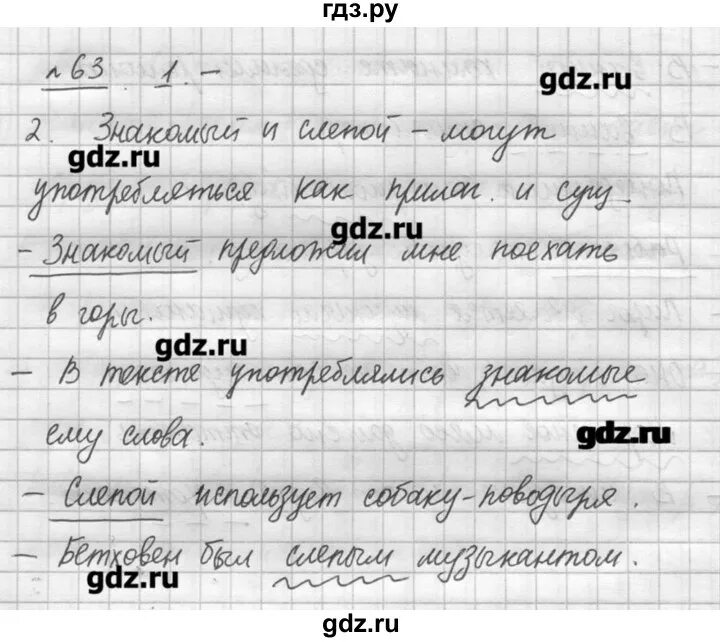 гдз.ру
№ 63 1. –
gdz.ru
2. Знакомый и слепой – могут
gdz.ru
употребляться как прилаг. и сущ.
gdz.ru
– Знакомый предложил мне поехать
в горы.
gdz.ru
– В тексте употреблялись знакомые
ему слова.
gdz.ru
– Слепой использует собаку-поводыря.
– Бетховен был слепым музыкантом.
gdz.ru
gdz.ru
гдз.ру